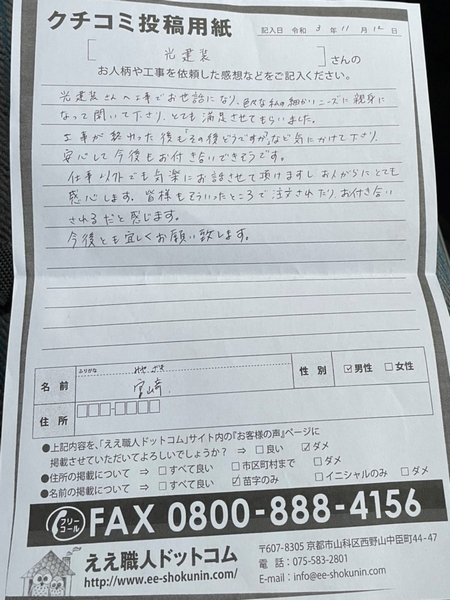 クチコミ投稿用紙
記入日 令和 3 年 11 月 12 日
光建装 さんの
お人柄や工事を依頼した感想などをご記入ください。
光建装さんへ工事でお世話になり、色々な私の細かいニーズに親身に
なって聞いて下さり、とても満足させてもらいました。
工事が終わった後も「その後どうですか」など気にかけて下さり、
安心して今後もお付き合いできそうです。
仕事以外でも気楽にお話させて頂けますしお人がらにとても
感心します。皆様もそういったところで注文されたりお付き合い
されるだと感じます。
今後とも宜しくお願い致します。
ふりかな みやざき
名前 宮崎
性別 ☑男性 □女性
住所
●上記内容を、「ええ職人ドットコム」サイト内の『お客様の声』ページに
掲載させていただいてよろしいでしょうか? ⇒ □良い ☑ダメ
●住所の掲載について ⇒ □すべて良い □市区町村まで □ダメ
●名前の掲載について ⇒ □すべて良い ☑苗字のみ □イニシャルのみ □ダメ
フリーコール FAX 0800-888-4156
ええ職人ドットコム
http://www.ee-shokunin.com/
〒607-8305 京都市山科区西野山中臣町44-47
電話:075-583-2801
E-mail:info@ee-shokunin.com